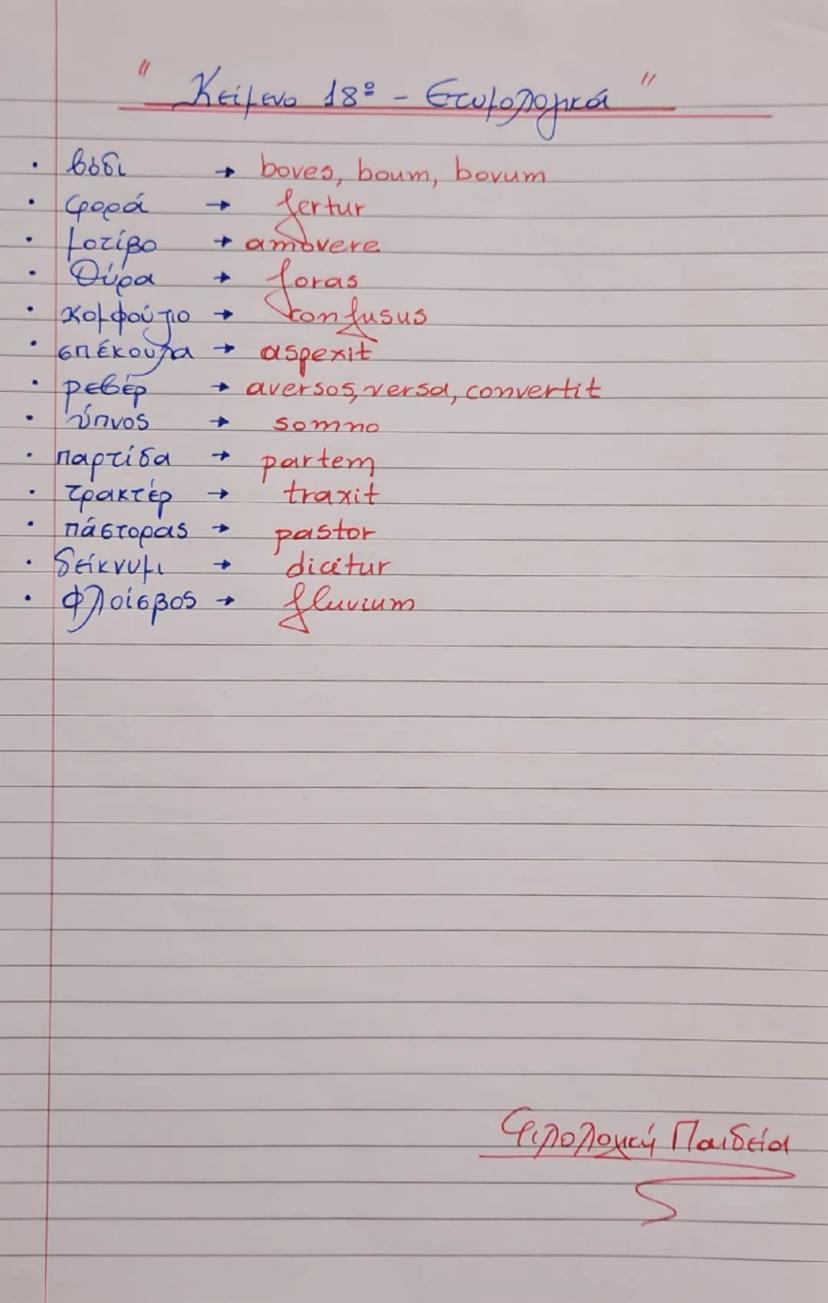 " Κείμενο 18º - Ετυμολογικά "
· βόδι → boves, boum, bovum
· φορά → fertur
· μοτίβο → amovere
· θύρα → foras
· κομφούζιο → confusus
· σπέκουλα → aspexit
· ρεβέρ → aversos, versa, convertit
· ύπνος → somno
· παρτίδα → partem
· τρακτέρ → traxit
· πάστορας → pastor
· δείκνυμι → dicitur
· φλοίσβος → fluvium
Φιλολογική Παιδεία